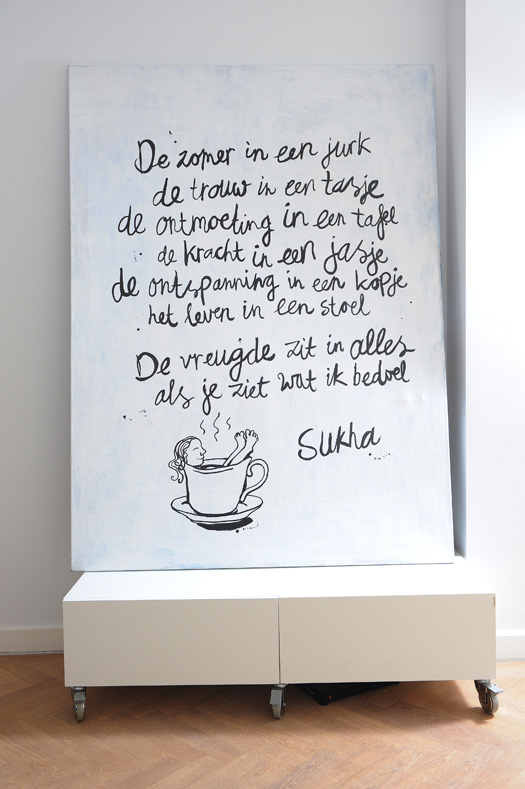 De zomer in een jurk
de trouw in een tasje
de ontmoeting in een tafel
de kracht in een jasje
de ontspanning in een kopje
het leven in een stoel
De vreugde zit in alles
als je ziet wat ik bedoel
Sukha